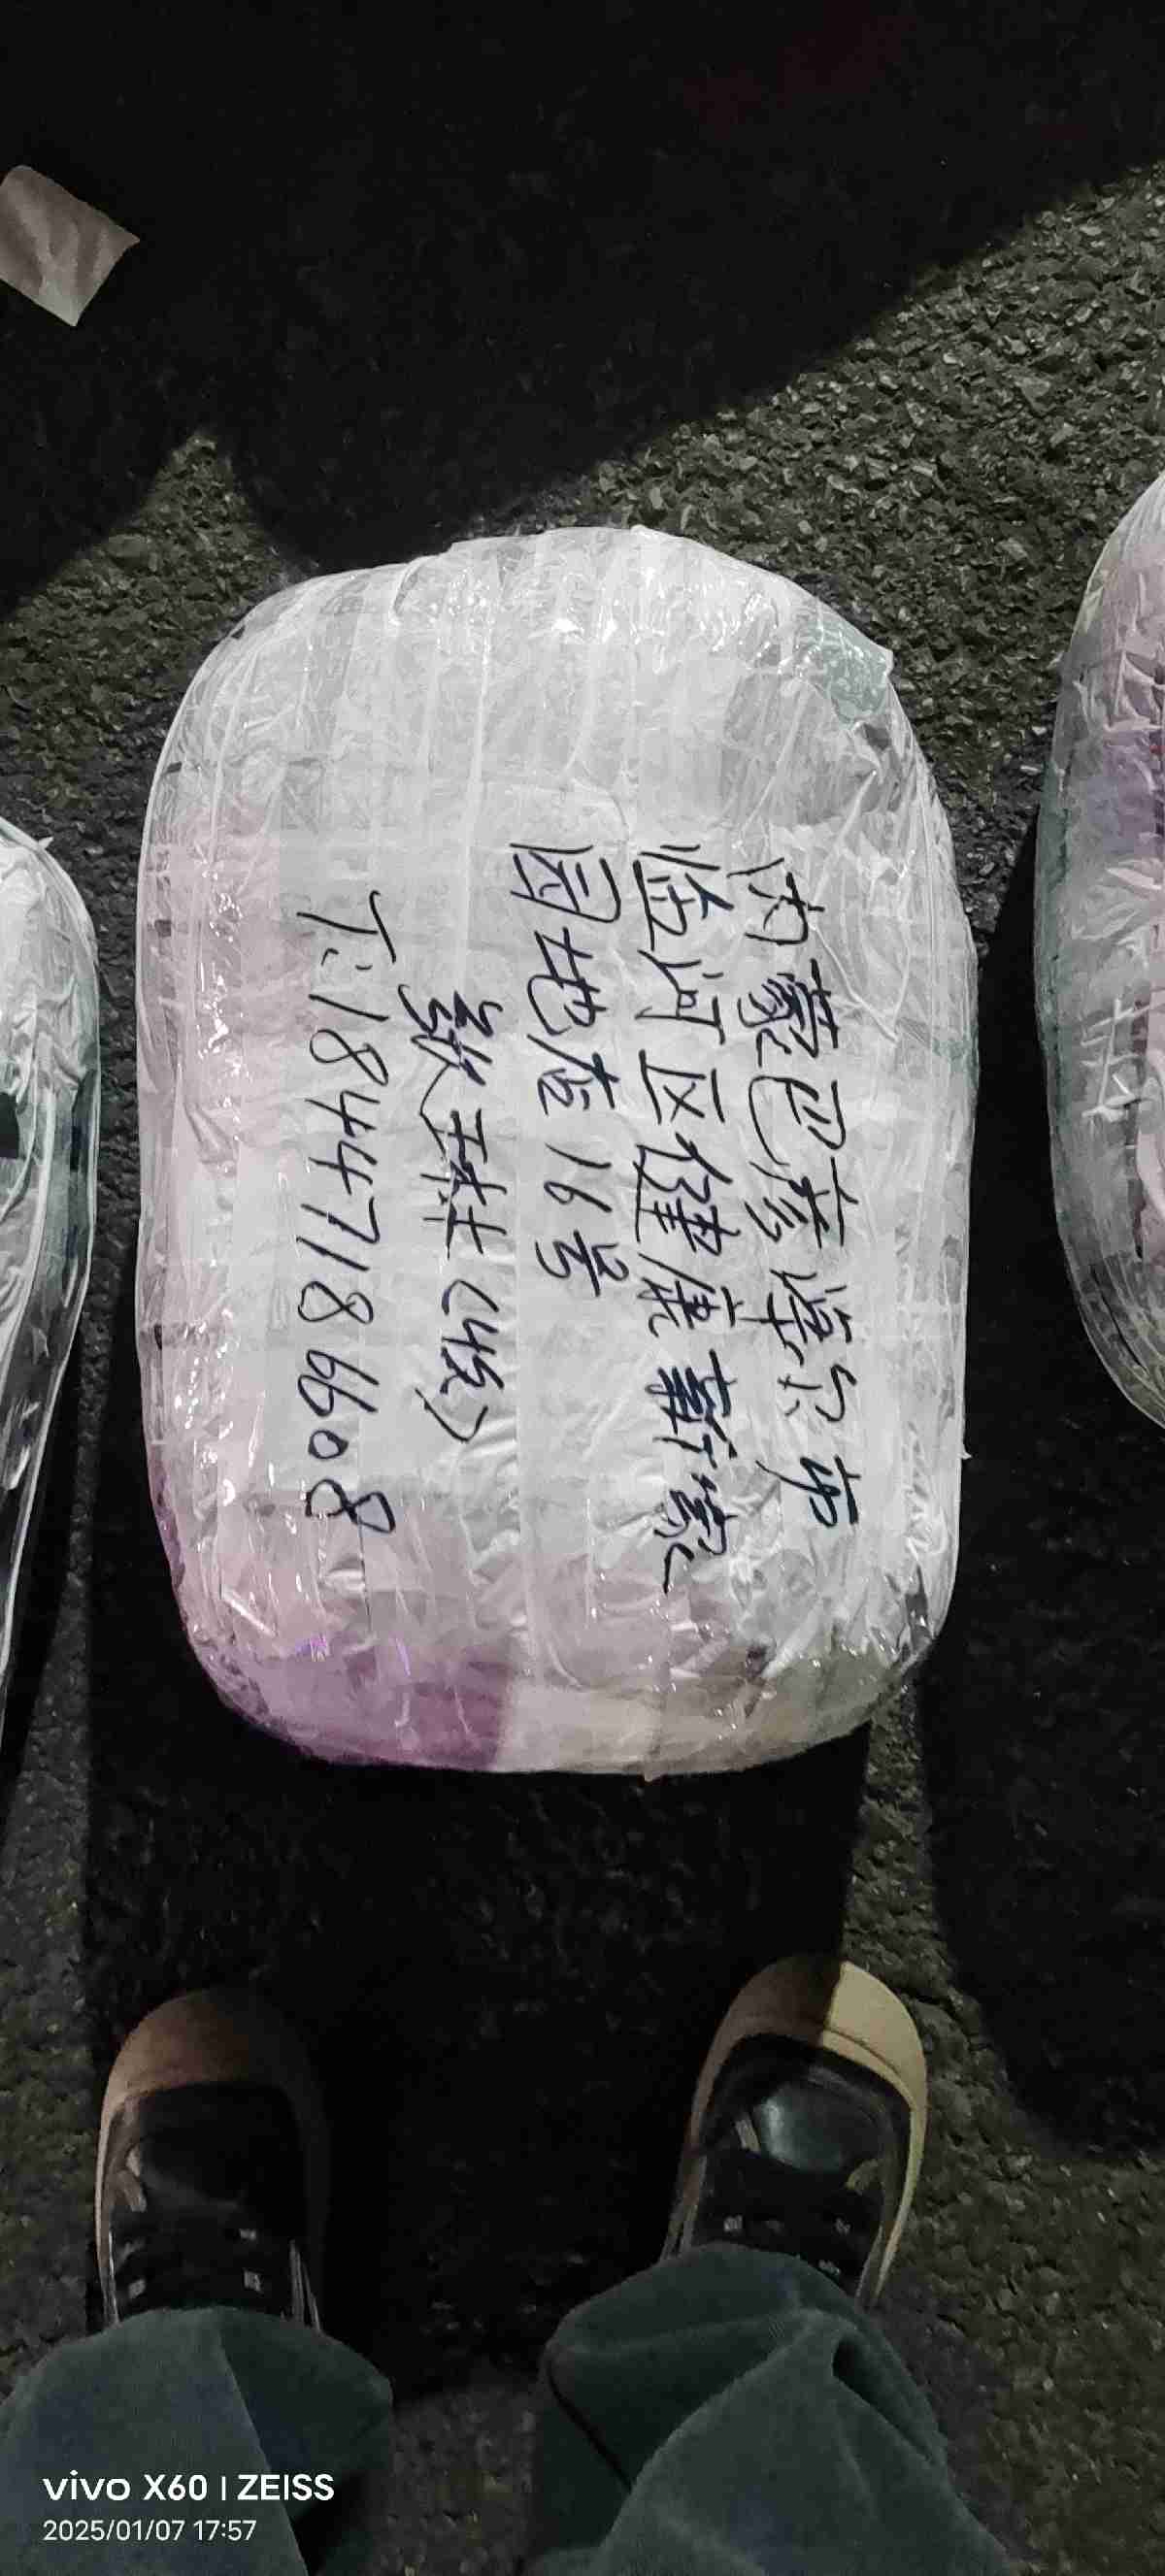 内蒙巴彦淖尔市
临河区健康新家
园地店16号
张琳(收)
T:18447186608
vivo X60 | ZEISS
2025/01/07 17:57